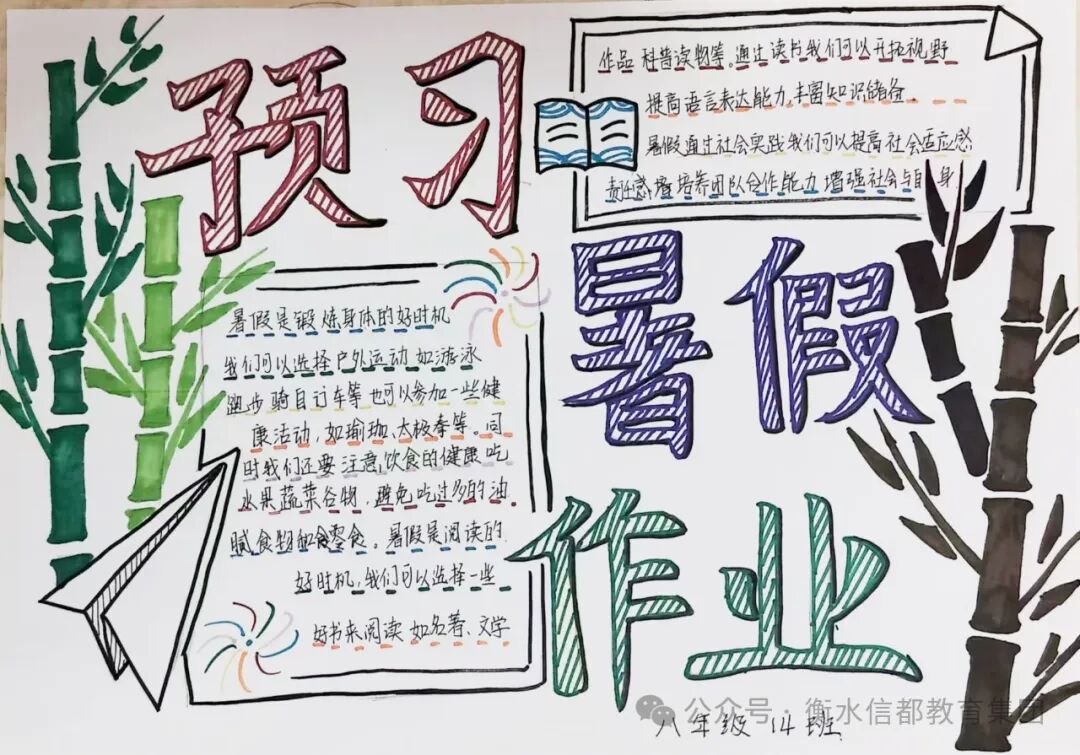 预习
暑假
作业
暑假是锻炼身体的好时机
我们可以选择户外运动如游泳
跑步骑自行车等也可以参加一些健
康活动,如瑜珈、太极拳等。同
时我们还要注意,饮食的健康吃
水果蔬菜谷物,避免吃过多的油
腻食物和零食。暑假是阅读的
好时机,我们可以选择一些
好书来阅读如名著、文学
作品 科普读物等。通过读书我们可以开拓视野
提高语言表达能力,丰富知识储备.
暑假通过社会实践我们可以提高社会适应感
责任感,培养团队合作能力 增强社会与自身
八年级 14班
公众号·衡水信都教育集团